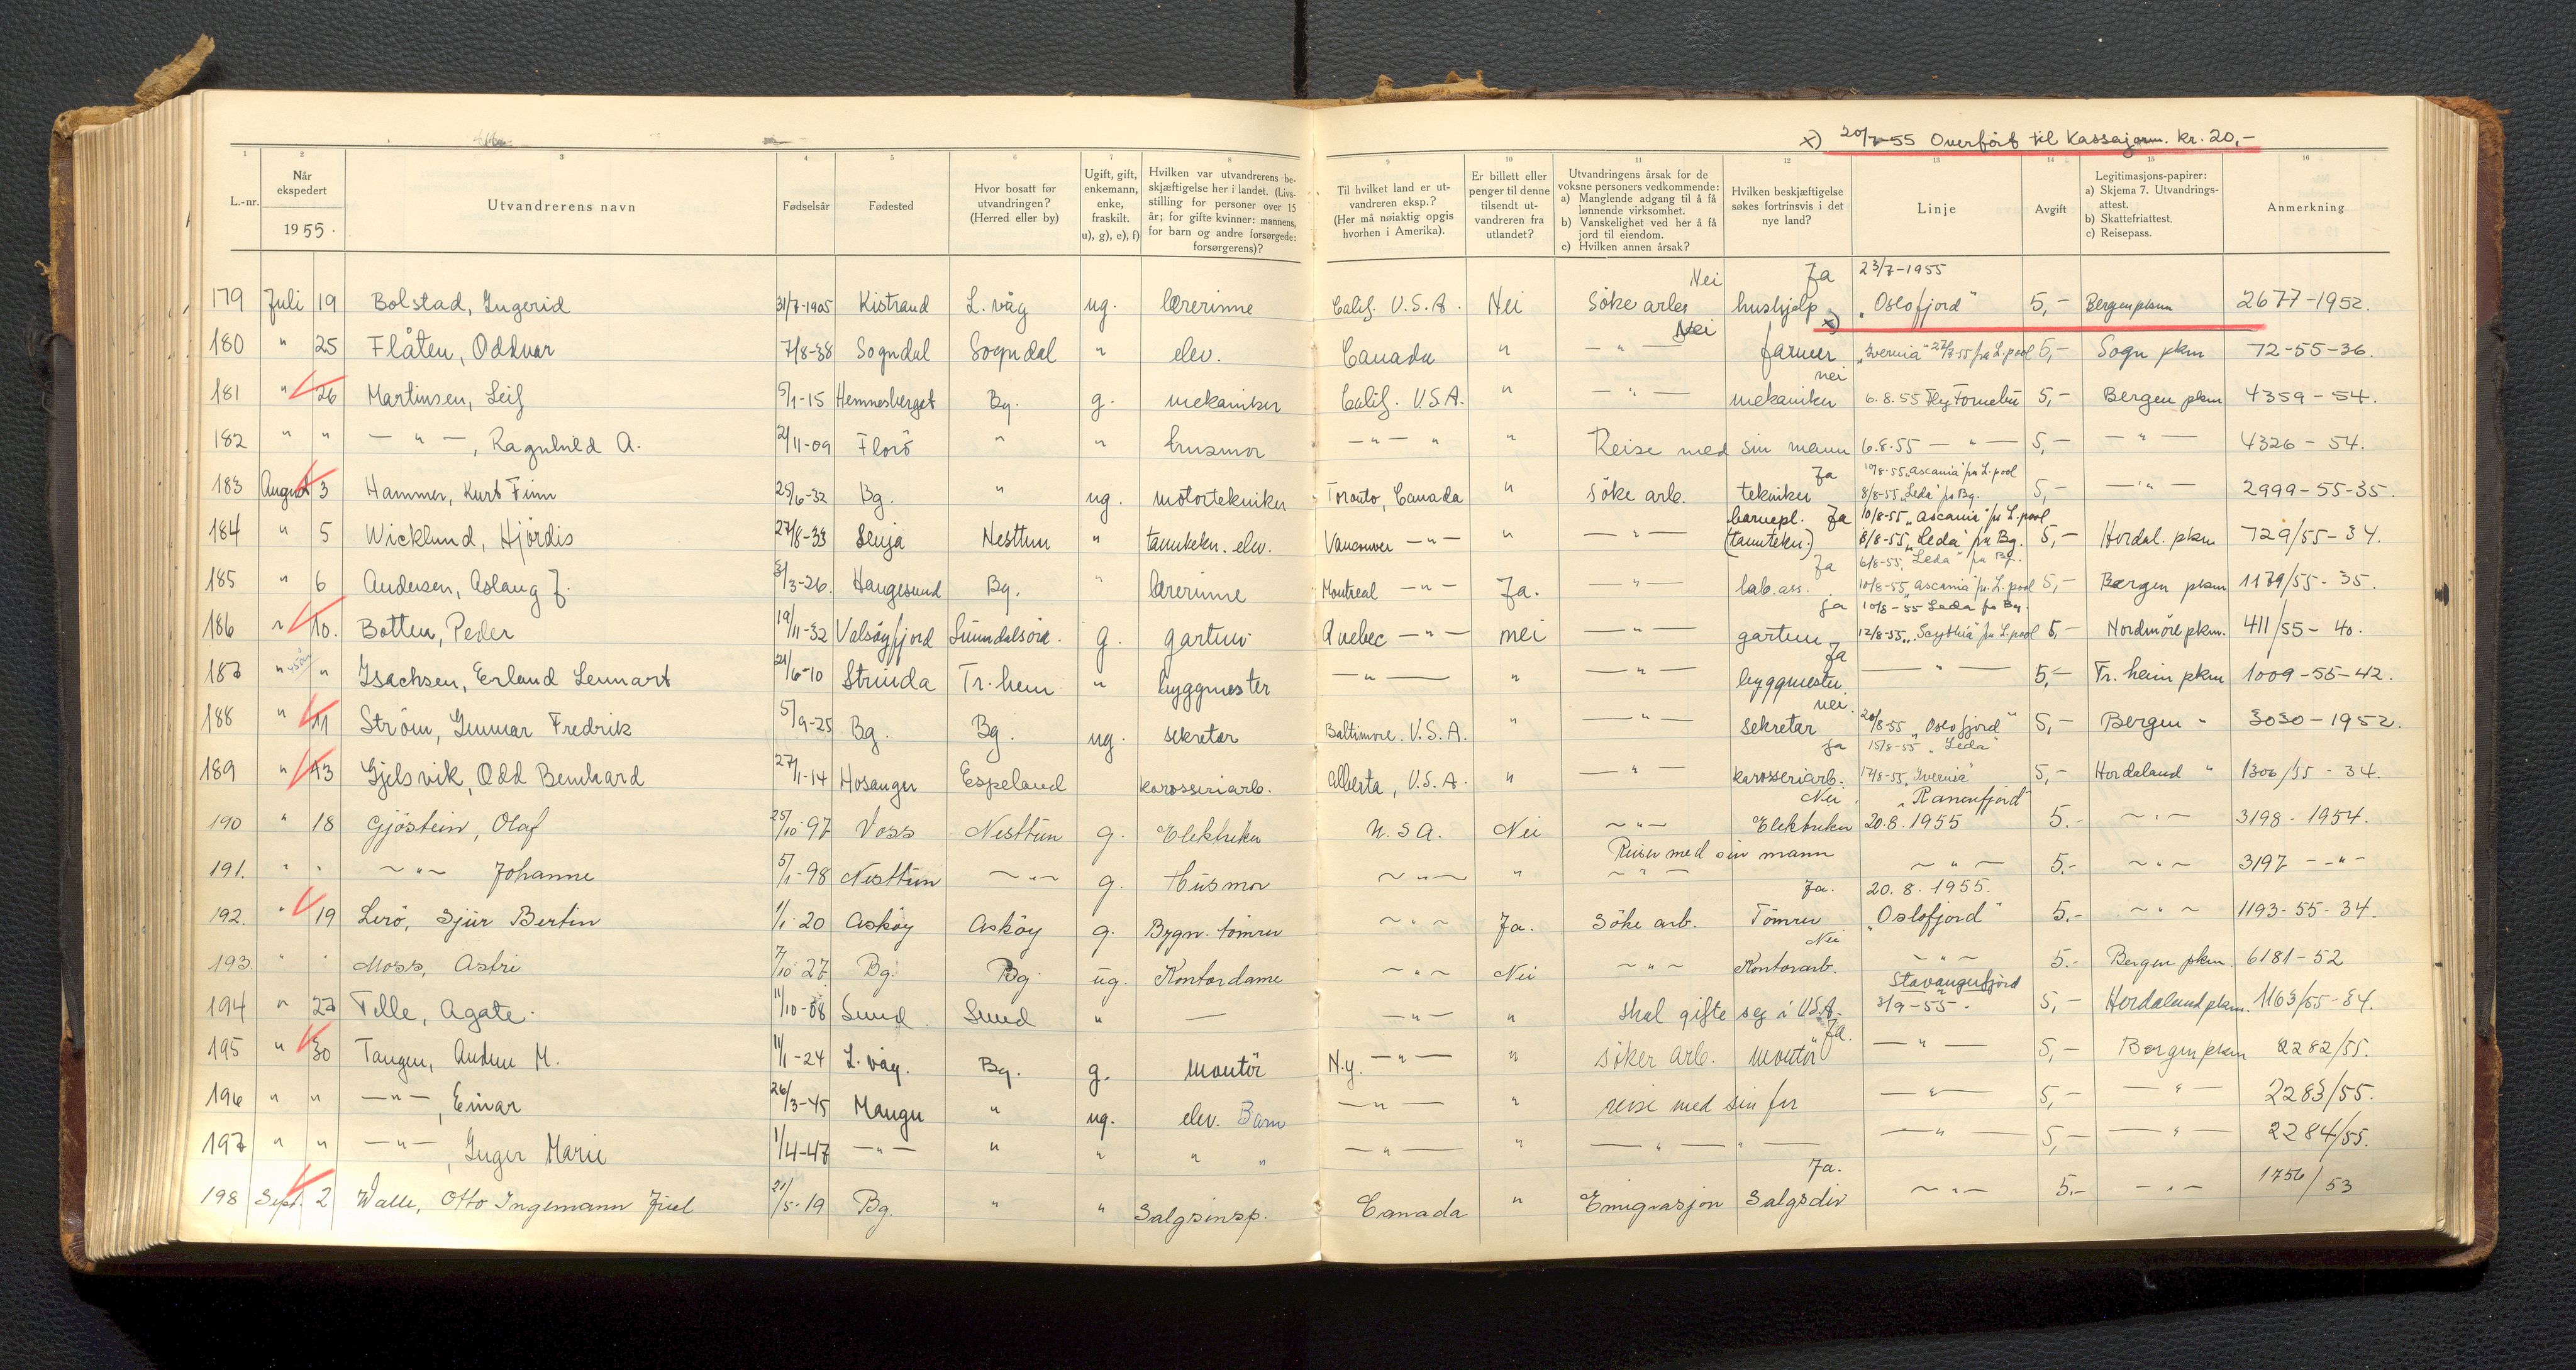 x) 20/7-55 Overført til Kassajorn. kr. 20,-
1 2 3 4 5 6 7 8 9 10 11 12 13 14 15 16
L.-nr. | Når ekspedert 1955. | Utvandrerens navn | Fødselsår | Fødested | Hvor bosatt før utvandringen? (Herred eller by) | Ugift, gift, enkemann, enke, fraskilt. u), g), e), f) | Hvilken var utvandrerens beskjæftigelse her i landet. (Livsstilling for personer over 15 år; for gifte kvinner: mannens, for barn og andre forsørgede: forsørgerens)? | Til hvilket land er utvandreren eksp.? (Her må nøiaktig opgis hvorhen i Amerika). | Er billett eller penger til denne tilsendt utvandreren fra utlandet? | Utvandringens årsak for de voksne personers vedkommende: a) Manglende adgang til å få lønnende virksomhet. b) Vanskelighet ved her å få jord til eiendom. c) Hvilken annen årsak? | Hvilken beskjæftigelse søkes fortrinsvis i det nye land? | Linje | Avgift | Legitimasjons-papirer: a) Skjema 7. Utvandrings-attest. b) Skattefriattest. c) Reisepass. | Anmerkning
179 Juli 19 Bolstad, Ingerid 31/7-1905 Kistrand L.våg ug. lærerinne Calif. U.S.A. Nei Søke arb. Nei hushjelp Ja 23/7-1955 "Oslofjord" 5,- Bergen pkm 2677-1952.
180 " 25 Flåten, Oddvar 7/8-38 Sogndal Sogndal " elev. Canada " - " - Nei farmer x) "Ivernia" 27/7-55 fra L.pool 5,- Sogn pkm 72-55-36.
181 " 26 Martinsen, Leif 5/1-15 Hemnesberget Bg. g. mekaniker Calif. U.S.A. " - " - nei mekaniker 6.8.55 Fly Fornebu 5,- Bergen pkm 4359-54.
182 " " - " -, Ragnhild A. 2/11-09 Florö " " husmor - " - " " Reise med sin mann 6.8.55 - " - 5,- - " - 4326-54.
183 August 3 Hammer, Kurt Finn 25/6-32 Bg. " ug. motortekniker Toronto, Canada " søke arb. Ja tekniker 10/8-55 "Ascania" fra L.pool 8/8-55 "Leda" fra Bg. 5,- - " - 2999-55-35.
184 " 5 Wicklund, Hjördis 27/8-33 Senja Nesttun " tanntekn. elev. Vancouver - " - " - " - barnepl. Ja (tanntekn.) 10/8-55 "Ascania" fra L.pool 8/8-55 "Leda" fra Bg. 5,- Hordal. pkm 729/55-34.
185 " 6 Andersen, Aslaug J. 3/3-26. Haugesund Bg. " lærerinne Montreal - " - Ja. - " - Ja lab.ass. 6/8-55, "Leda" fra Bg. 10/8-55 "Ascania" fra L.pool 5,- Bergen pkm 1179/55-35.
186 " 10. Botten, Peder 19/11-32 Valsöyfjord Sunndalsöra. g. gartner Quebec - " - nei - " - Ja gartner 10/8-55 Leda fra Bg. 12/8-55 "Scythia" fra L.pool 5,- Nordmöre pkm. 411/55-40.
187 " " Isachsen, Erland Lennart 21/6-10 Strinda Tr.heim " byggmester - " - " - " - Ja byggmester - " - 5,- Tr.heim pkm 1009-55-42.
188 " 11 Ström, Gunnar Fredrik 5/9-25 Bg. Bg. ug. sekretær Baltimore. U.S.A. " - " - nei. sekretær 20/8-55 "Oslofjord" 5,- Bergen " 3030-1952.
189 " 13 Gjelsvik, Odd Bernhard 27/1-14 Hosanger Espeland karosseriarb. Alberta, U.S.A. " - " - Ja karosseriarb. 15/8-55 "Leda" 17/8-55 "Ivernia" 5,- Hordaland " 1306/55-34.
190 " 18 Gjöstein, Olaf 25/10-97 Voss Nesttun g. Elektriker U.S.A. Nei ~ " ~ Nei Elektriker "Ranenfjord" 20.8.1955 5.- ~ " ~ 3198-1954.
191. " " ~ " ~ Johanne 5/1-98 Nesttun ~ " ~ g. Husmor ~ " ~ " Reiser med sin mann ~ " ~ ~ " ~ 5.- ~ " ~ 3197 - " -
192. " 19 Lerö, Sjur Bertin 1/1-20 Asköy Asköy g. Bygn. tömrer ~ " ~ Ja. Söke arb. Ja. Tömrer 20.8.1955. "Oslofjord" 5.- ~ " ~ 1193-55-34.
193. " " Moss, Astri 7/10-27 Bg. Bg ug. Kontordame ~ " ~ Nei ~ " ~ Nei Kontorarb. ~ " ~ 5.- Bergen pkm. 6181-52
194 " 22 Telle, Agate. 11/10-08 Sund. Sund " — - " - " skal gifte seg i USA. Stavangerfjord 3/9-55. 5,- Hordaland pkm. 1163/55-34.
195 " 30 Tangen, Anders M. 11/1-24 L.våg. Bg. g. Montör N.y. - " - " söker arb. Ja. montör - " - 5,- Bergen pkm 2282/55.
196 " " - " -, Einar 26/3-45 Manger " ug. elev. Barn - " - " reise med sin far - " - 5,- - " - 2283/55.
197 " " - " -, Inger Marie 1/4-47 - " - " " " " - " - " - " - " - - " - 5,- - " - 2284/55.
198 Sept. 2 Walle, Otto Ingemann Juel 21/5-19 Bg. " " Salgsinsp. Canada " Emigrasjon Ja. Salgsdir ~ " ~ 5.- - " - 1756/53